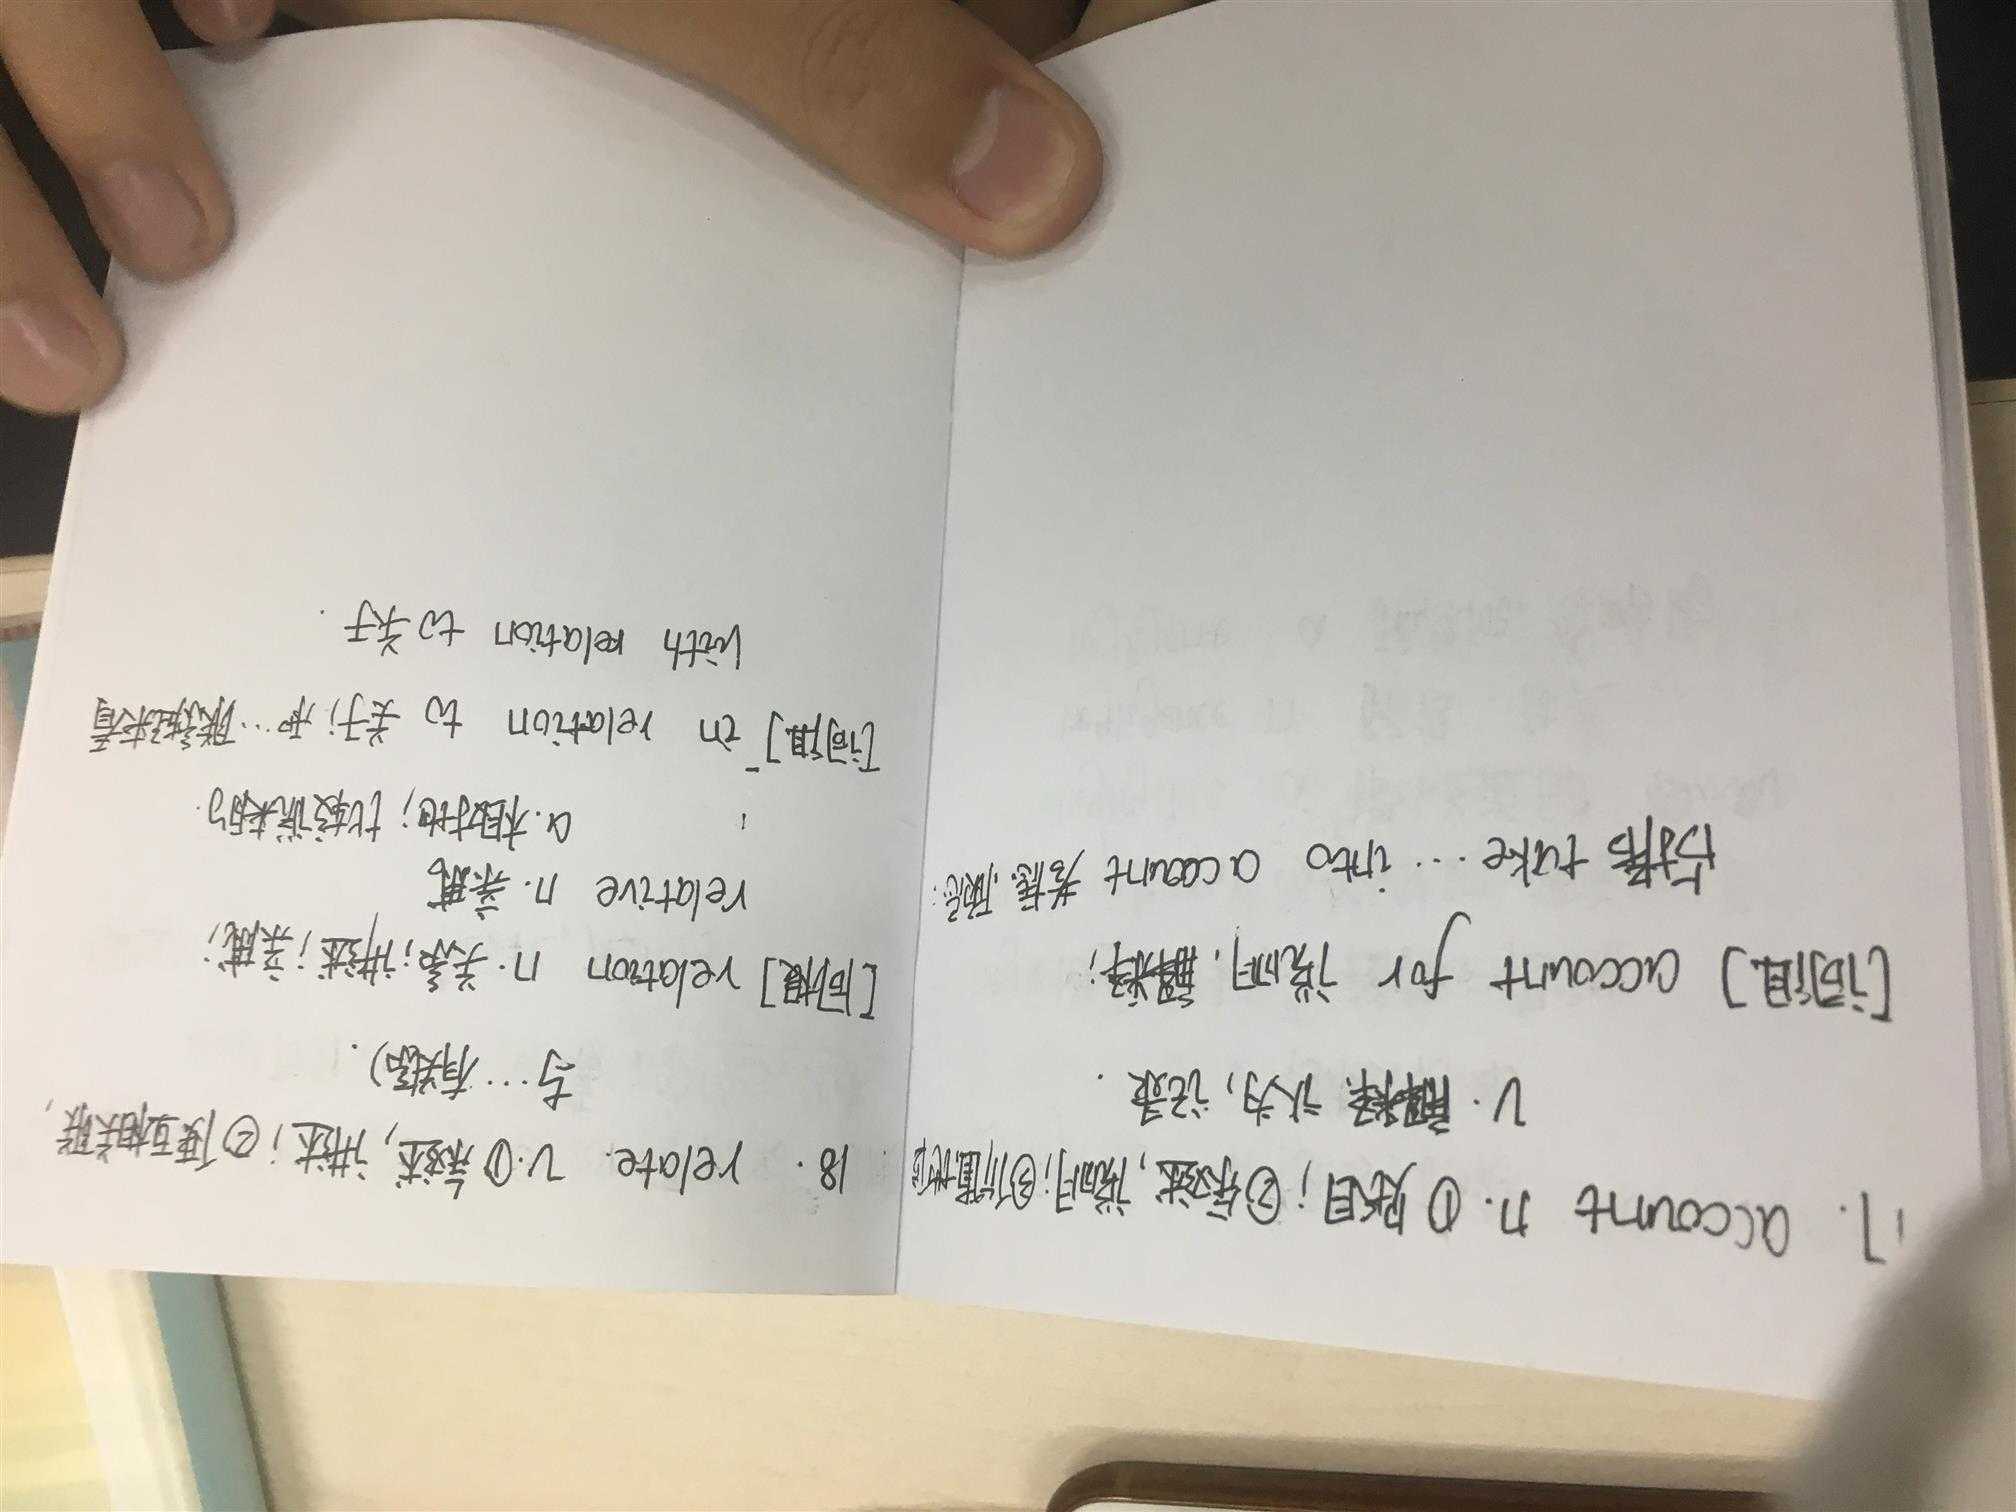 17. account n.①账目；②叙述，说明；③价值，地位
v. 解释，认为，记录.
[词组] account for 说明，解释；
take ... into account 考虑，顾虑.
18. relate v.①叙述，讲述；②使互相关联，
与…有关系).
[同根] relation n. 关系；讲述；亲戚；
relative n. 亲戚
a. 相对地；比较说来的.
[词组] in relation to 关于；和…联系起来看
with relation to 关于.